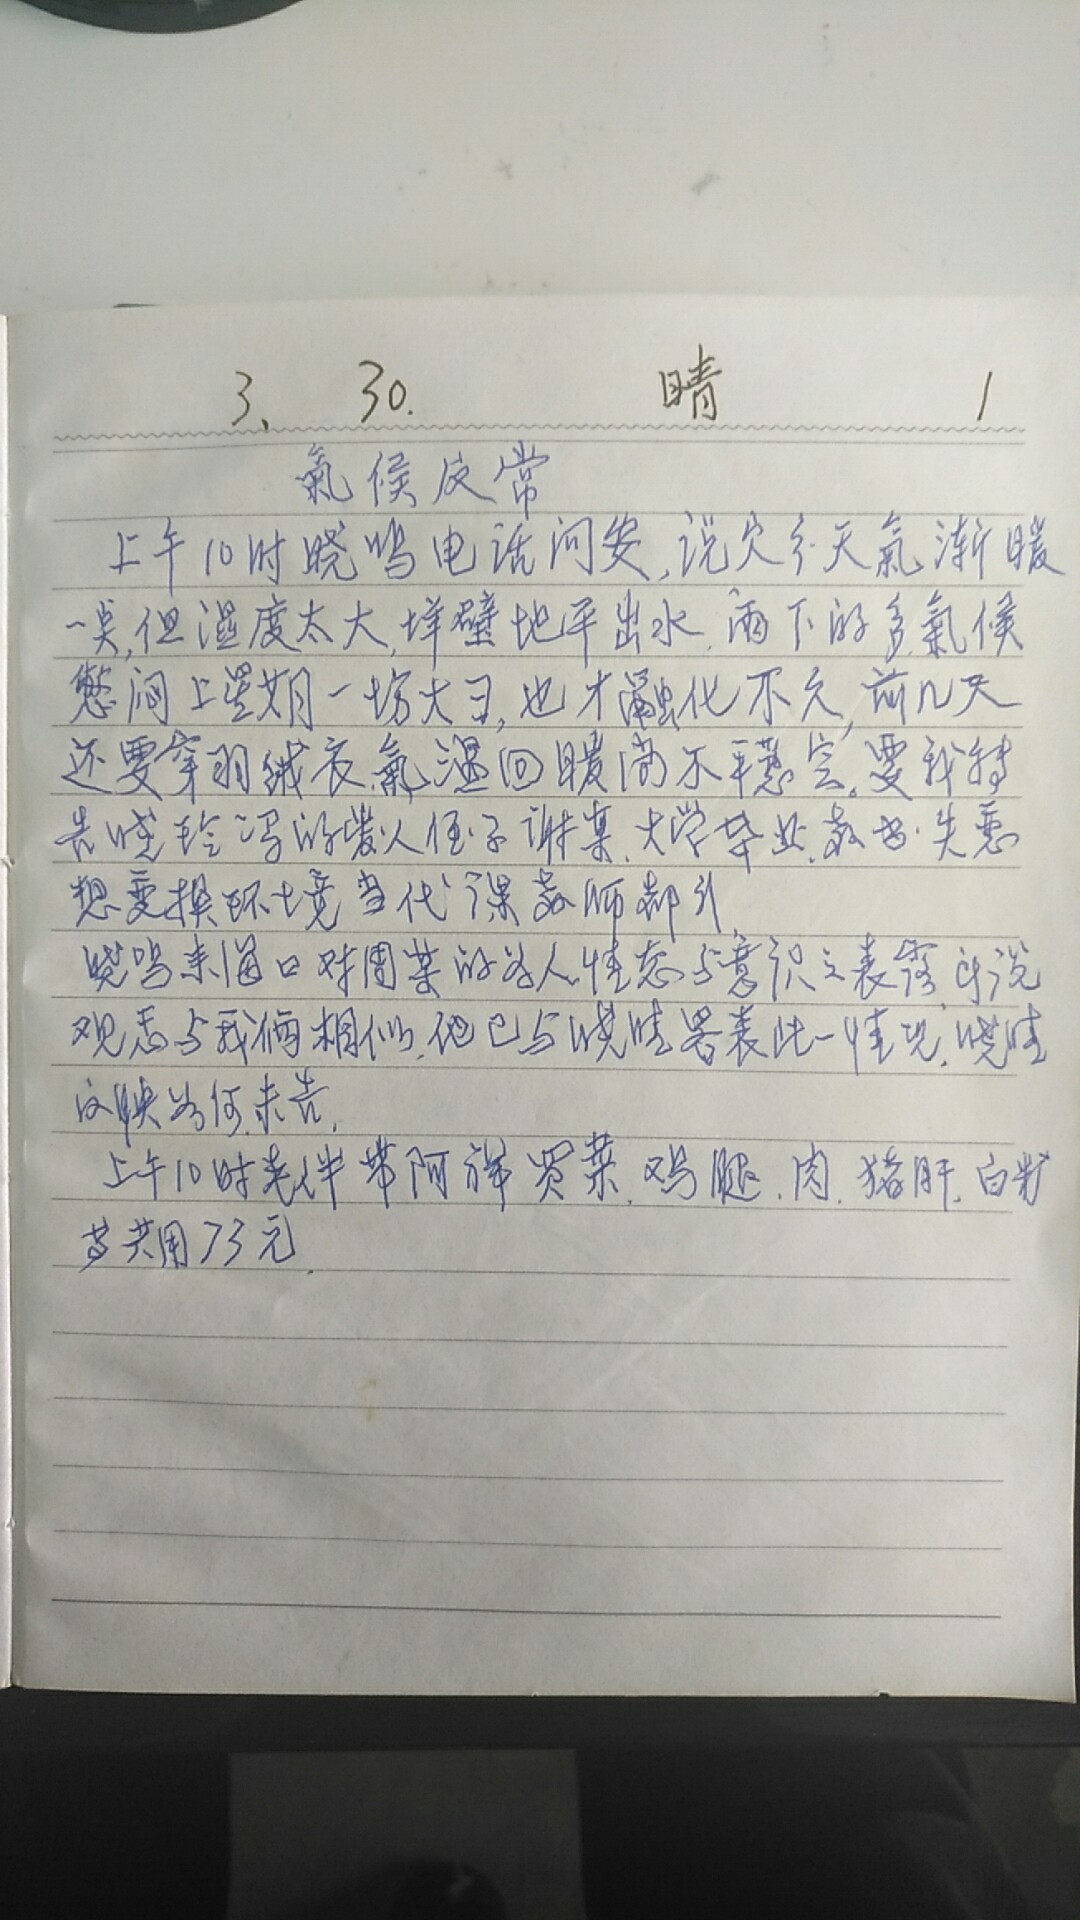 3、 30. 晴 1
氣候反常
上午10时晓鸣电话问安,说 天氣渐暖
一点,但湿度太大,墙壁地平出水.雨下的多,氣候
憋闷上星期一场大雪,也才融化不久,前几天
还要穿羽绒衣,氣温回暖尚不平稳定,要我转
告晓玲 的 人侄子谢某.大学毕业.教书.失恋
想变换环境当代课教师
晓鸣来海口对周某的为人性态与意识之表露 说
观点与我俩相似.他已与晓 表此一情况.晓
反映为何未告.
上午10时老伴带阿 买菜.鸡腿.肉.猪肝.白
等共用73元.